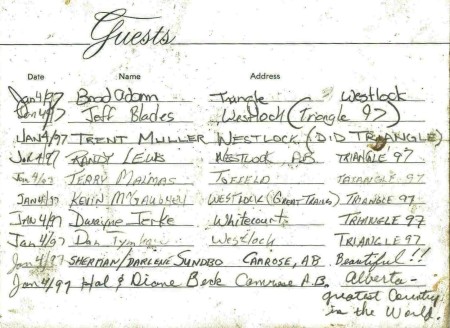 Guests
Date Name Address
Jan 4/97 Brad Triangle Westlock
Jan 4/97 Jeff Blades Westlock (Triangle 97)
JAN 4/97 TRENT MULLER WESTLOCK (DID TRIANGLE)
Jan 4/97 RANDY LEWIS WESTLOCK AB. TRIANGLE 97
Jan 4/97 TERRY MALMAS TOFIELD TRIANGLE 97
JAN 4/97 KEVIN WESTLOCK (GREAT TRAILS) TRIANGLE 97
JAN 4/97 Dwayne Terke Whitecourt TRIANGLE 97
Jan 4/97 Dan Westlock TRIANGLE 97
Jan 4/97 SHERMAN/DARLENE SUNDBO CAMROSE, AB Beautiful!!
Jan 4/97 Hal & Diane Berk Camrose AB. Alberta-
greatest Country
in the World.